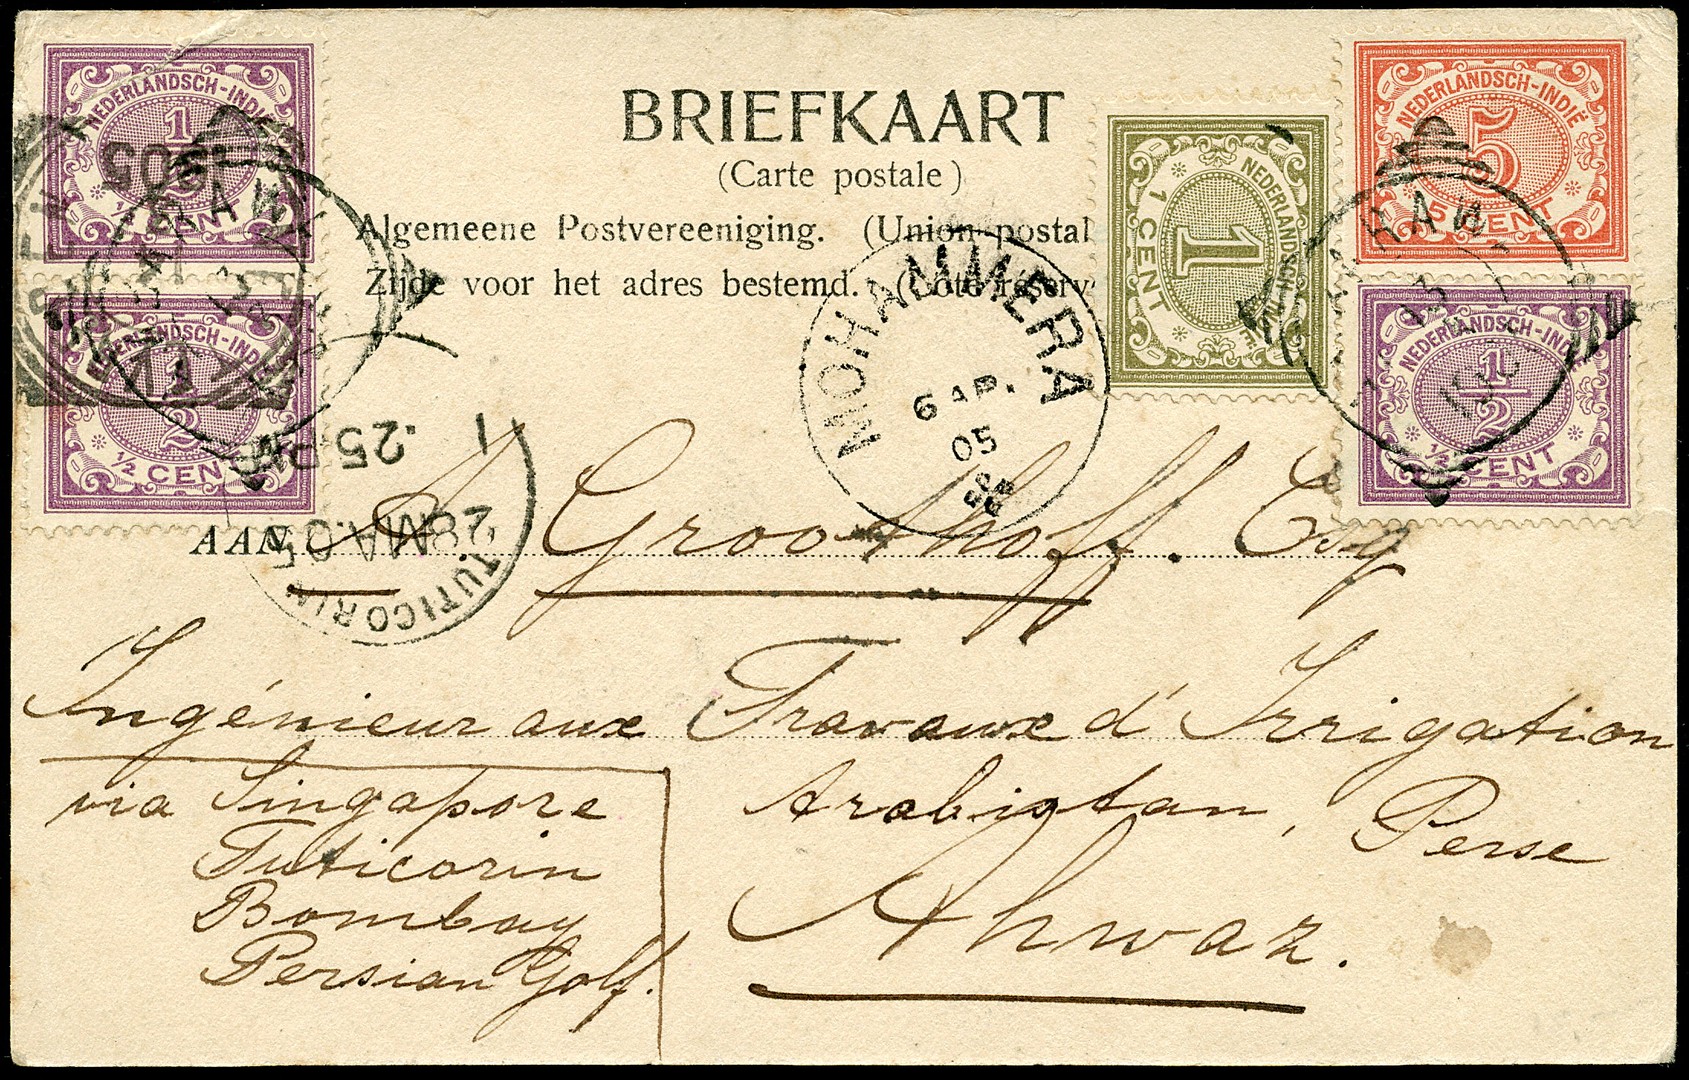 BRIEFKAART
(Carte postale)
Algemeene Postvereeniging. (Union postal
Zijde voor het adres bestemd. (Coté réserv
NEDERLANDSCH-INDIË
1/2
1/2 CENT
1905
NEDERLANDSCH-INDIË
1/2
1/2 CENT
NEDERLANDSCH-INDIË
1
1 CENT
NEDERLANDSCH-INDIË
5
5 CENT
NEDERLANDSCH-INDIË
1/2
1/2 CENT
MOHAMMERA
6 AP.
05
TUTICORIN
28MA.05
.25 PM
AAN
Groothoff. Esq
Ingénieur aux Travaux d'Irrigation
Arabistan, Perse
Ahwaz.
via Singapore
Tuticorin
Bombay
Persian Golf.